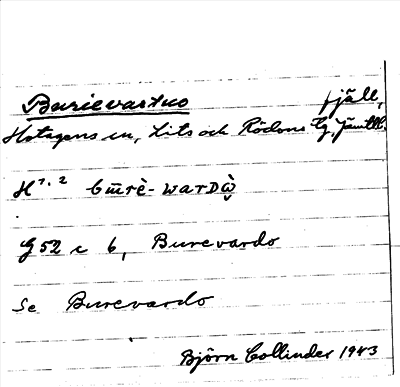 Burievartuo fjäll,
Hotagens sn, Lits och Rödöns tg, Jämtl.
H 1, 2
G 52 c 6, Burevardo
Se Burevardo
Björn Collinder 1943